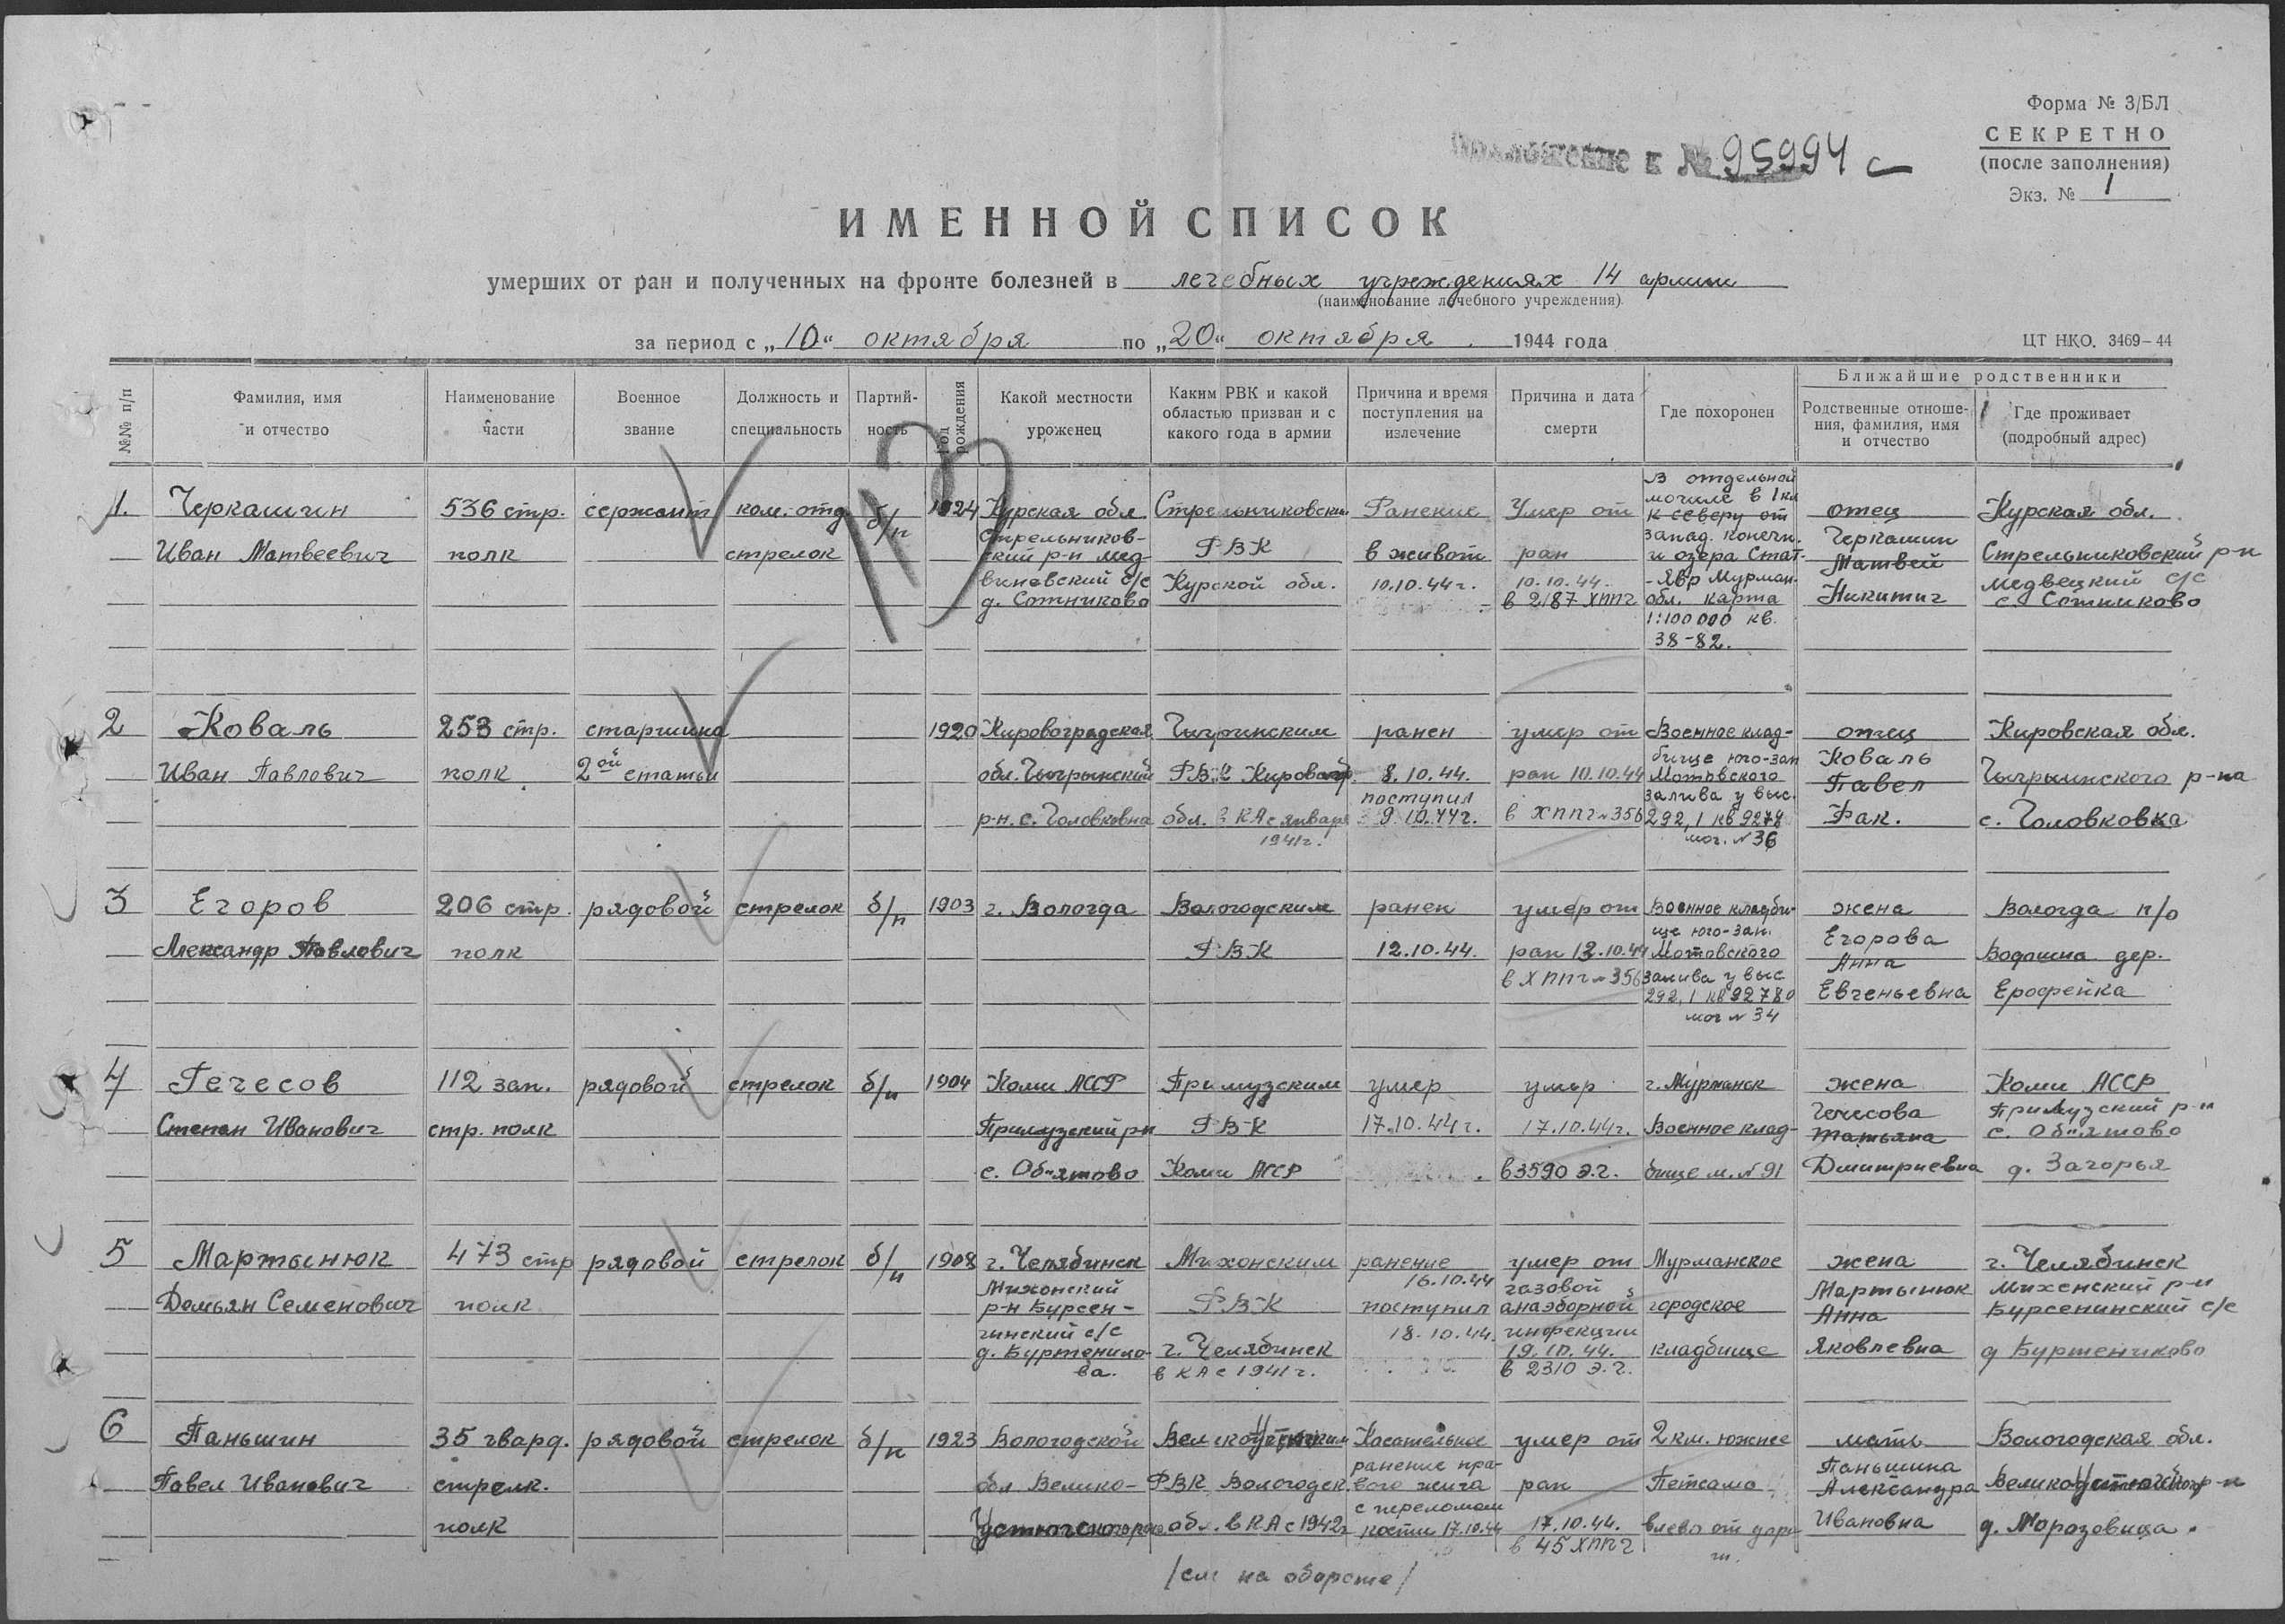 Форма № 3/БЛ
СЕКРЕТНО
(после заполнения)
Экз. № 1
Приложение к № 95994 с
ИМЕННОЙ СПИСОК
умерших от ран и полученных на фронте болезней в лечебных учреждениях 14 армии
(наименование лечебного учреждения)
за период с „10“ октября по „20“ октября 1944 года
ЦТ НКО. 3469-44
№№ п/п
Фамилия, имя
и отчество
Наименование
части
Военное
звание
Должность и
специальность
Партий-
ность
Год
рождения
Какой местности
уроженец
Каким РВК и какой
областью призван и с
какого года в армии
Причина и время
поступления на
излечение
Причина и дата
смерти
Где похоронен
Ближайшие родственники
Родственные отноше-
ния, фамилия, имя
и отчество
Где проживает
(подробный адрес)
1.
Черкашин
Иван Матвеевич
536 стр.
полк
сержант
ком. отд
стрелок
б/п
1924
Курская обл
Стрельников-
ский р-н Мед-
виневский с/с
д. Сотниково
Стрельниковским
РВК
Курской обл.
Ранение
в живот
10.10.44г.
Умер от
ран
10.10.44.
в 2187 ХППГ
В отдельной
могиле в 1 км
к северу от
запад. конечн.
и озера Стат-
-Явр Мурман.
обл. карта
1:100000 кв.
38-82.
отец
Черкашин
Матвей
Никитич
Курская обл.
Стрельниковский р-н
Медвецкий с/с
с. Сотниково
2
Коваль
Иван Павлович
253 стр.
полк
старшина
2ой статьи
1920
Кировоградская
обл. Чигрынский
р-н. с. Головковна
Чигринским
РВК Кировогр.
обл. в КА с января
1941г.
ранен
8.10.44.
поступил
9.10.44г.
умер от
ран 10.10.44
в ХППГ №356
Военное клад-
бище юго-зап
Мотовского
залива у выс.
292,1 кв 9278
мог. №36
отец
Коваль
Павел
Фак.
Кировская обл.
Чигрынинского р-на
с. Головковка
3
Егоров
Александр Павлович
206 стр.
полк
рядовой
стрелок
б/п
1903
г. Вологда
Вологодским
РВК
ранен
12.10.44.
умер от
ран 12.10.44
в ХППГ №356
Военное кладби-
ще юго-зап.
Мотовского
залива у выс
292,1 кв 92780
мог №34
жена
Егорова
Анна
Евгеньевна
Вологда п/о
Водошна дер.
Ерофейка
4
Гечесов
Степан Иванович
112 зап.
стр. полк
рядовой
стрелок
б/п
1904
Коми АССР
Прилузский рн
с. Об"ятово
Прилузским
РВК
Коми АССР
умер
17.10.44г.
умер
17.10.44г.
в 3590 э.г.
г. Мурманск
Военное клад-
бище м. №91
жена
Гечесова
Татьяна
Дмитриевна
Коми АССР
Прилузский р-н
с. Об"ятово
д. Загорья
5
Мартынюк
Демьян Семенович
473 стр
полк
рядовой
стрелок
б/п
1908
г. Челябинск
Михонский
р-н Бурсен-
гинский с/с
д. Буртенико-
ва.
Михонским
РВК
г. Челябинск
в КА с 1941г.
ранение
16.10.44
поступил
18.10.44.
умер от
газовой
анаэборной
инфекции
19.10.44.
в 2310 э.г.
Мурманское
городское
кладбище
жена
Мартынюк
Анна
Яковлевна
г. Челябинск
Михенский р-н
Бурсенинский с/с
д Буртениково
6
Паньшин
Павел Иванович
35 гвард.
стрелк.
полк
рядовой
стрелок
б/п
1923
Вологодской
обл Велико-
Устюгского р-на
ВеликоУстюгским
РВК Вологодск.
обл. в КА с 1942г
Касательное
ранение пра-
вого
с переломом
кости 17.10.44
умер от
ран
17.10.44.
в 45 ХППГ
2 км. южнее
Петсамо
влево от доро-
ги.
мать
Паньшина
Александра
Ивановна
Вологодская обл.
ВеликоУстюгского р-н
д. Морозовица.
/см на обороте/